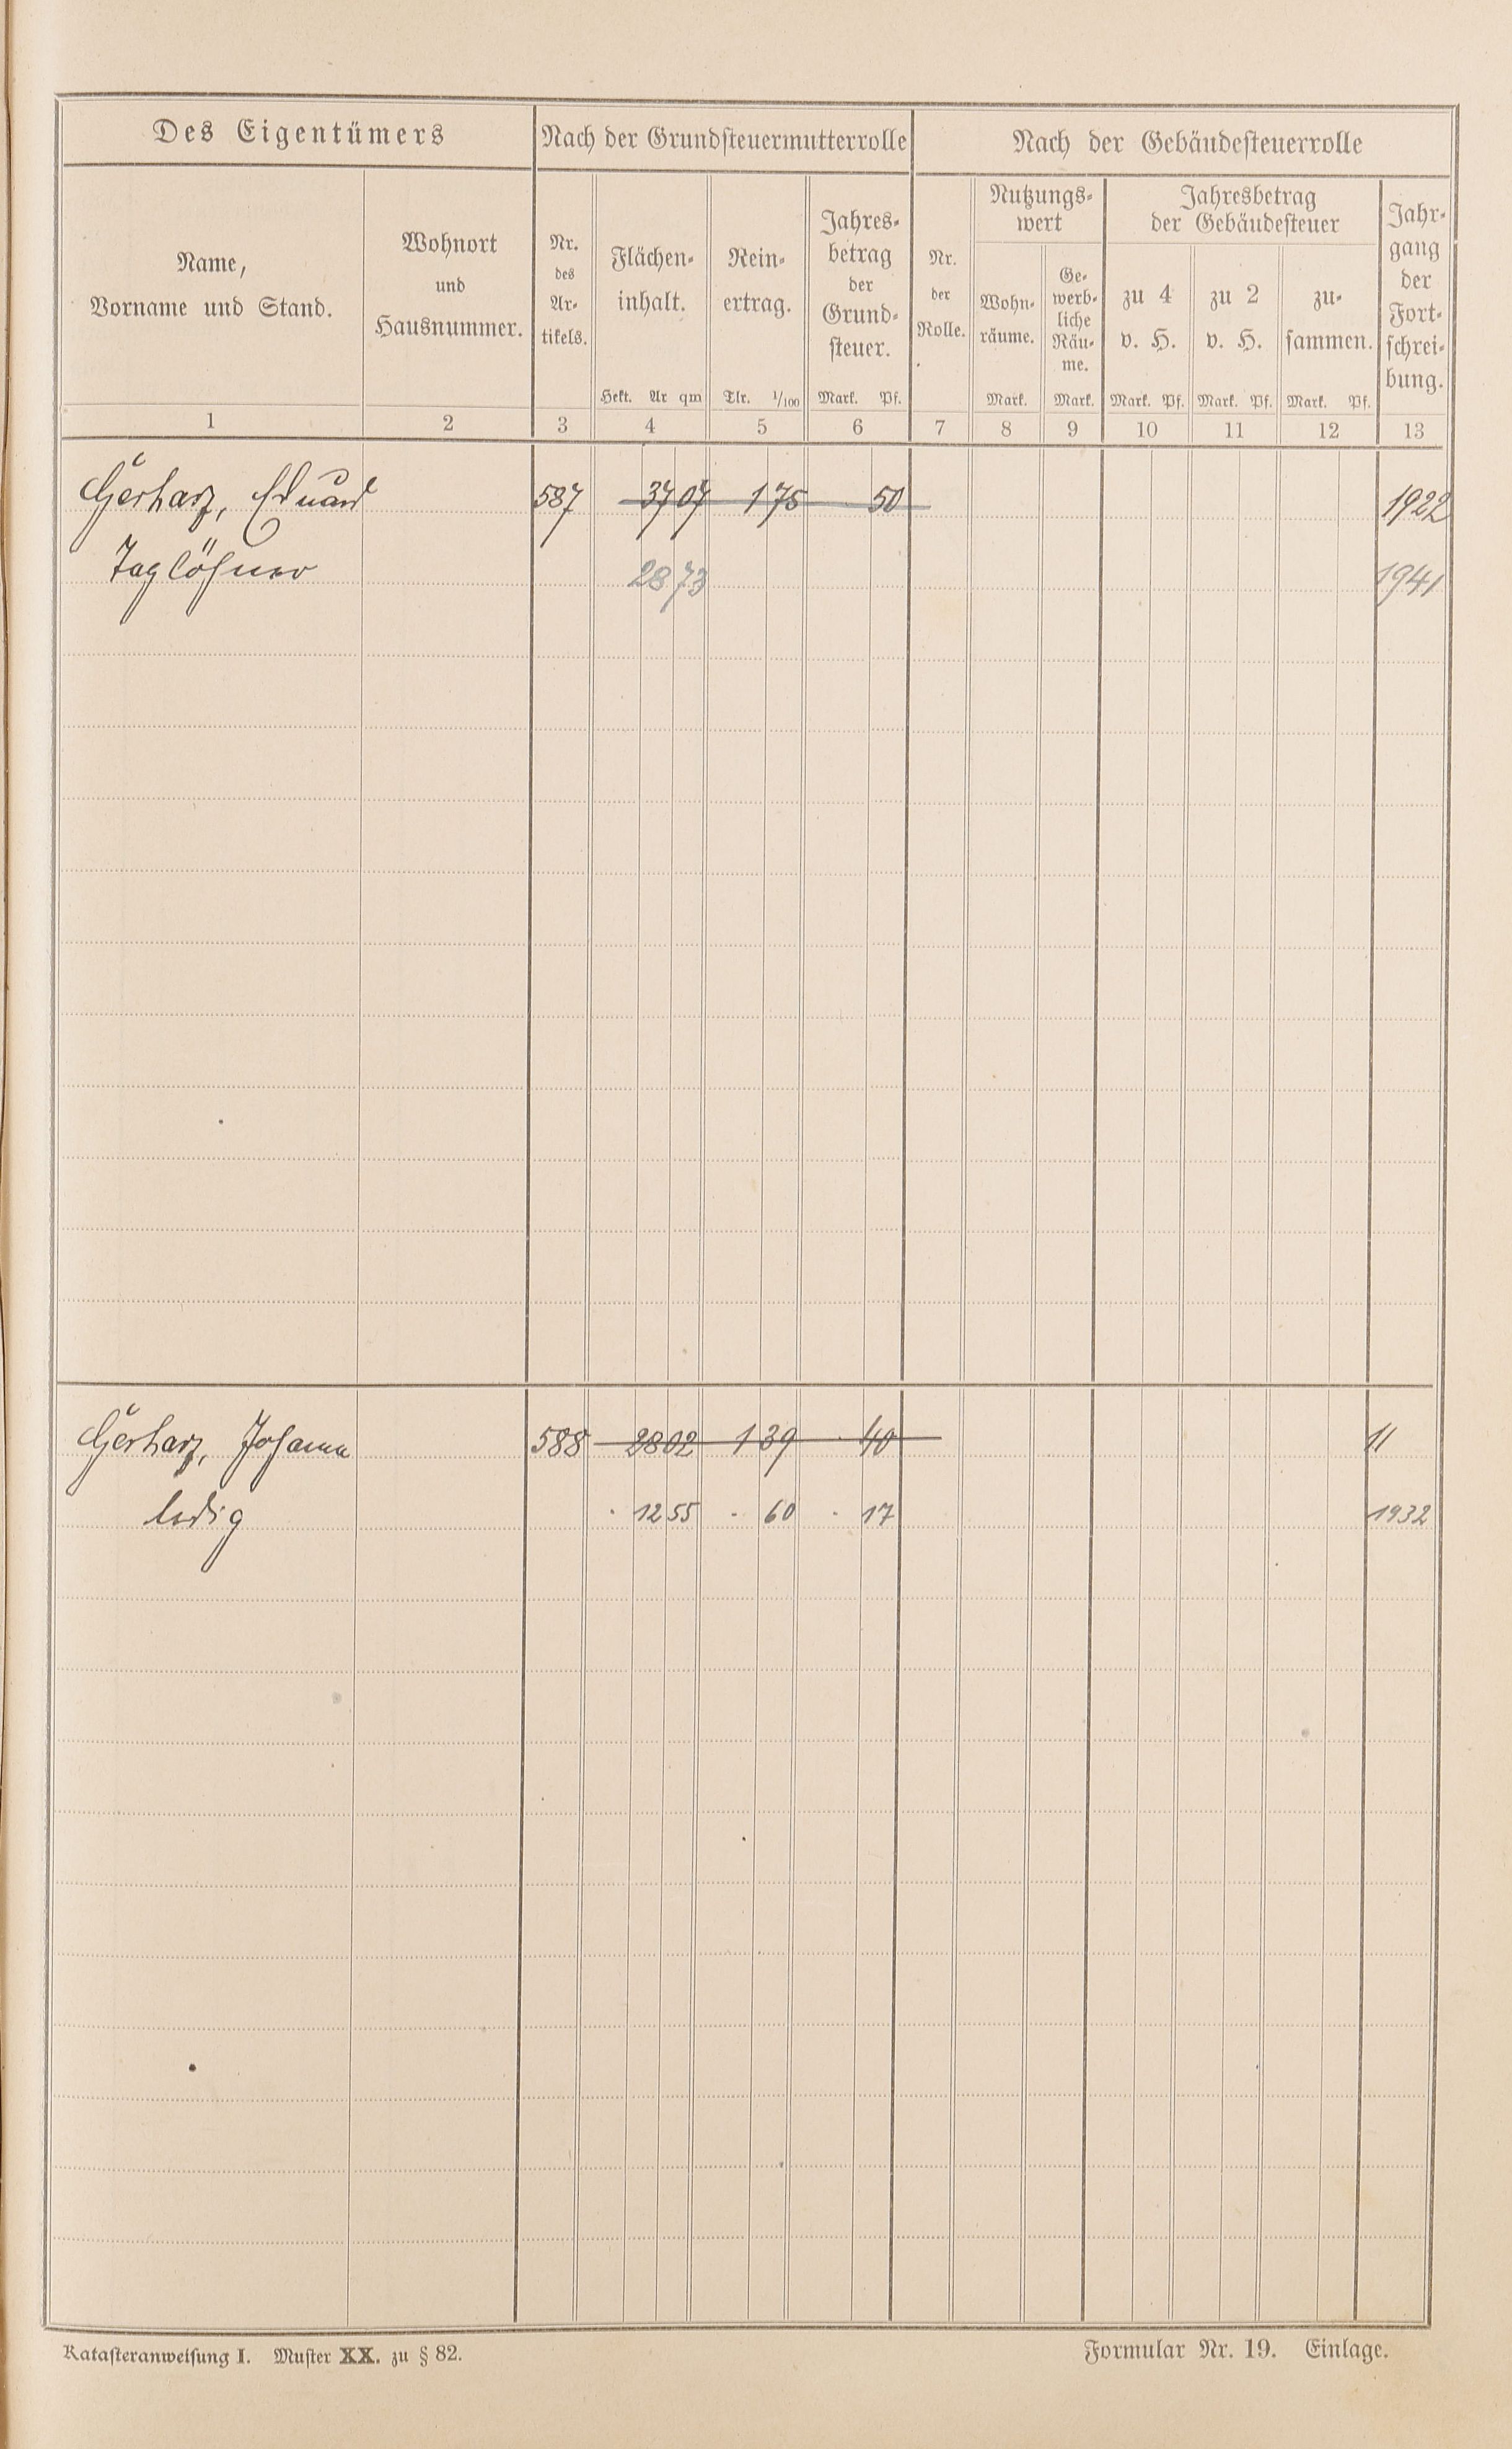 Des Eigentümers
Nach der Grundsteuermutterrolle
Nach der Gebäudesteuerrolle
Name,
Vorname und Stand.
Wohnort
und
Hausnummer.
Nr.
des
Ar-
tikels.
Flächen-
inhalt.
Hekt. Ar qm
Rein-
ertrag.
Tlr. 1/100
Jahres-
betrag
der
Grund-
steuer.
Mark. Pf.
Nr.
der
Rolle.
Nutzungs-
wert
Wohn-
räume.
Mark.
Ge-
werb-
liche
Räu-
me.
Mark.
Jahresbetrag
der Gebäudesteuer
zu 4
v. H.
Mark. Pf.
zu 2
v. H.
Mark. Pf.
zu-
sammen.
Mark. Pf.
Jahr-
gang
der
Fort-
schrei-
bung.
1 2 3 4 5 6 7 8 9 10 11 12 13
Gerharz, Eduard 587 37 07 1 75 50 1922
Taglöhner 28 73 1941
Gerharz, Johann 588 28 02 1 39 · 40 11
ledig · 12 55 - 60 · 17 1932
Katasteranweisung I. Muster XX. zu § 82.
Formular Nr. 19. Einlage.